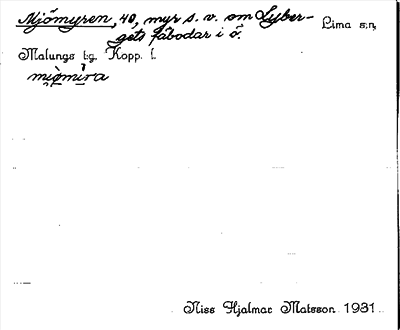 Mjömyren, 40, myr s. v. om Lyber-
gets fäbodar i ö.
Lima s:n,
Malungs t:g. Kopp. l.
Niss Hjalmar Matsson 1931